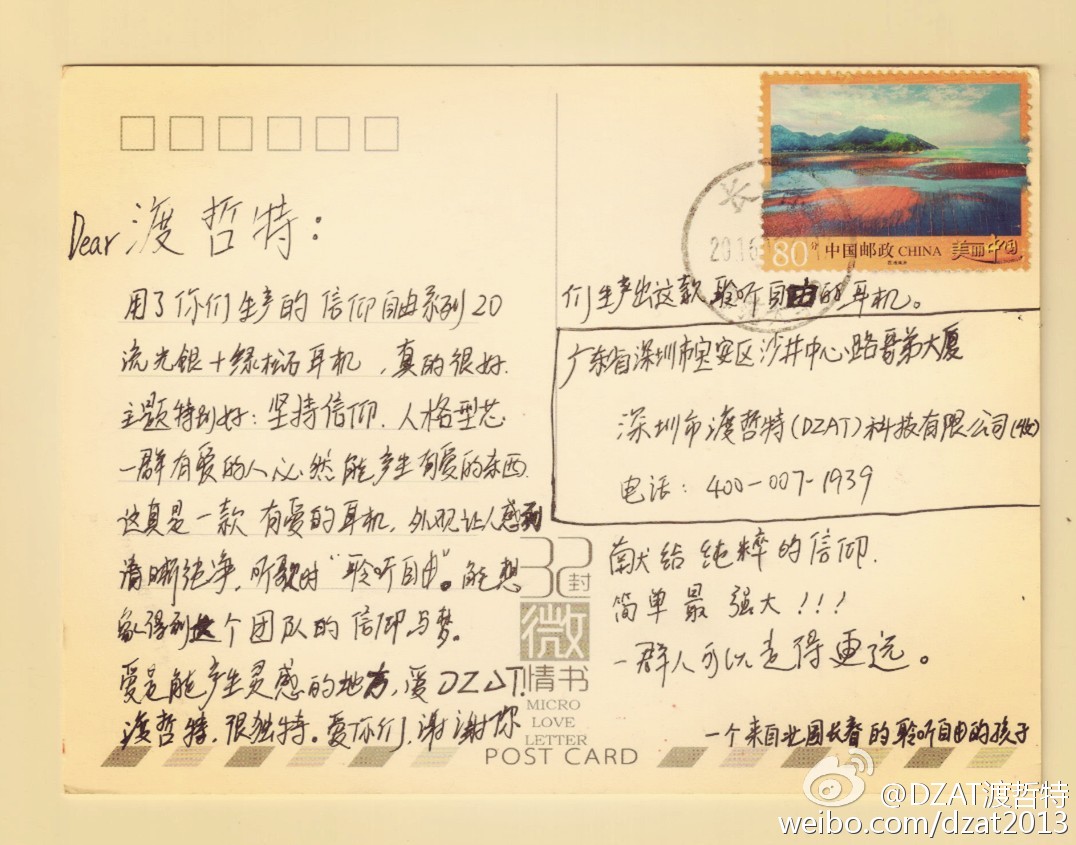 Dear 渡哲特：
用了你们生产的信仰自由系列20
流光银+绿松石耳机，真的很好.
主题特别好：坚持信仰.人格型芯
一群有爱的人必然能产生有爱的东西.
这真是一款有爱的耳机，外观让人感到
清晰纯净，听歌时“聆听自由”。能想
象得到这个团队的信仰与梦。
爱是能产生灵感的地方，爱DZAT.
渡哲特，很独特。爱你们，谢谢你
们生产出这款聆听自由的耳机。
广东省深圳市宝安区沙井中心路哥弟大厦
深圳市渡哲特(DZAT)科技有限公司(收)
电话：400-007-1939
献给纯粹的信仰.
简单最强大！！！
一群人可以走得更远。
一个来自北国长春的聆听自由的孩子
32封
微
情书
MICRO
LOVE
LETTER
POST CARD
80分 中国邮政 CHINA 美丽中国
2016
@DZAT渡哲特
weibo.com/dzat2013